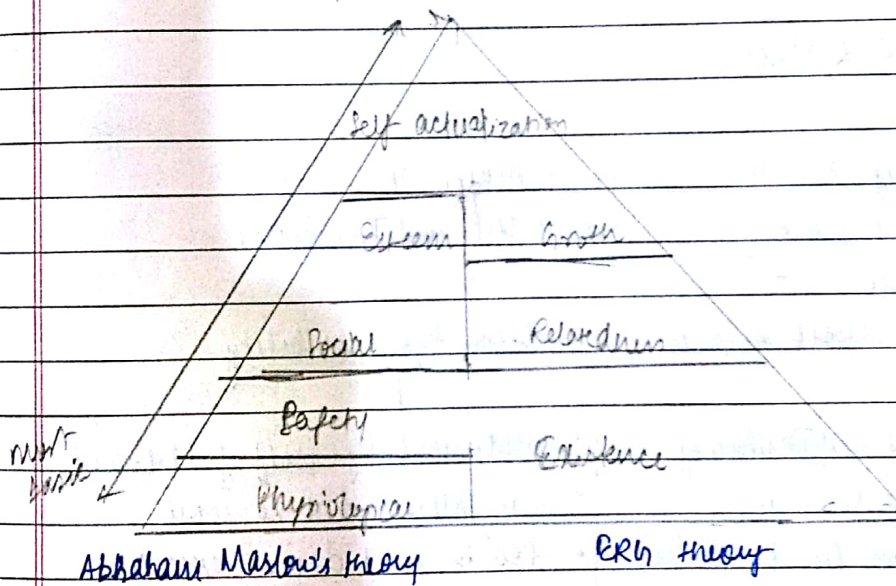 Self actualization
Esteem Growth
Social Relatedness
Safety
Most basic Existence
Physiological
Abraham Maslow's theory ERG theory